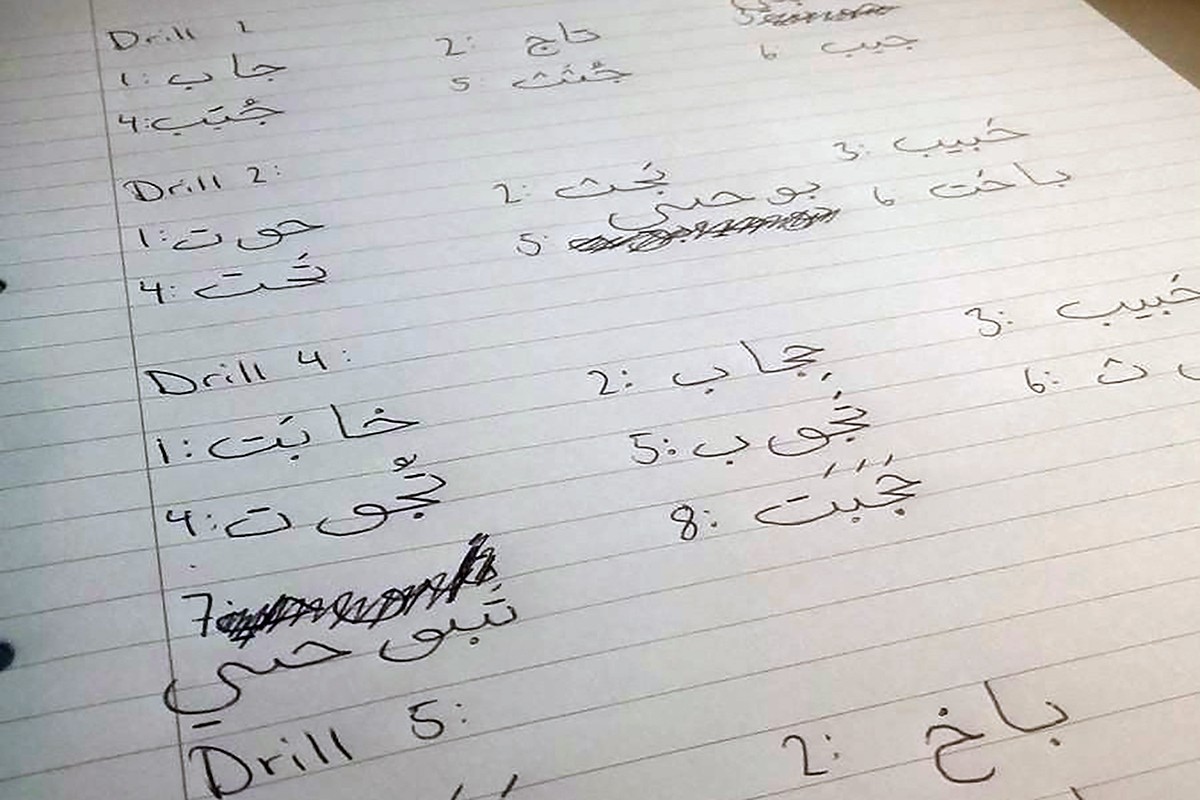 Drill 1
1: جاب 2: تاج 3:
4: جُبَب 5: جُثث 6 جيب
Drill 2:
1: حوت 2: بَحث 3: حَبيب
4: تَحت 5: بوحي 6 باخَت
Drill 4:
1: خابَت 2: جِاب 3: حَبيب
4: تَجوت 5: تَجوب 6: ث
7: 8: جَبَبَت
تَبوحي
Drill 5:
2: باخ